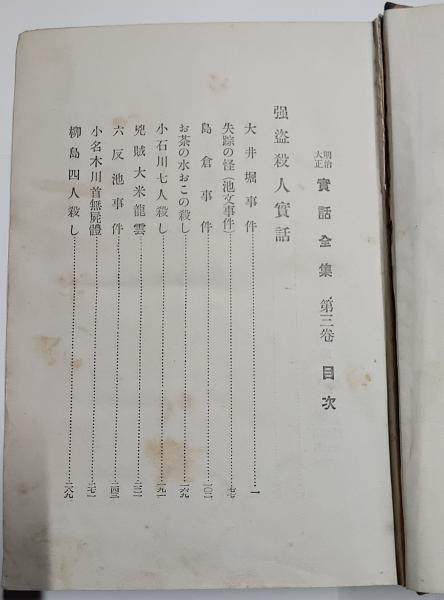 明治大正 實話全集 第三卷 目次
强盜殺人實話
大井堀事件……一
失踪の怪(池文事件)……七七
島倉事件……一〇一
お茶の水おこの殺し……一六九
小石川七人殺し……一九一
兇賊大米龍雲……二二一
六反池事件……二四三
小名木川首無屍體……二七一
柳島四人殺し……二八九